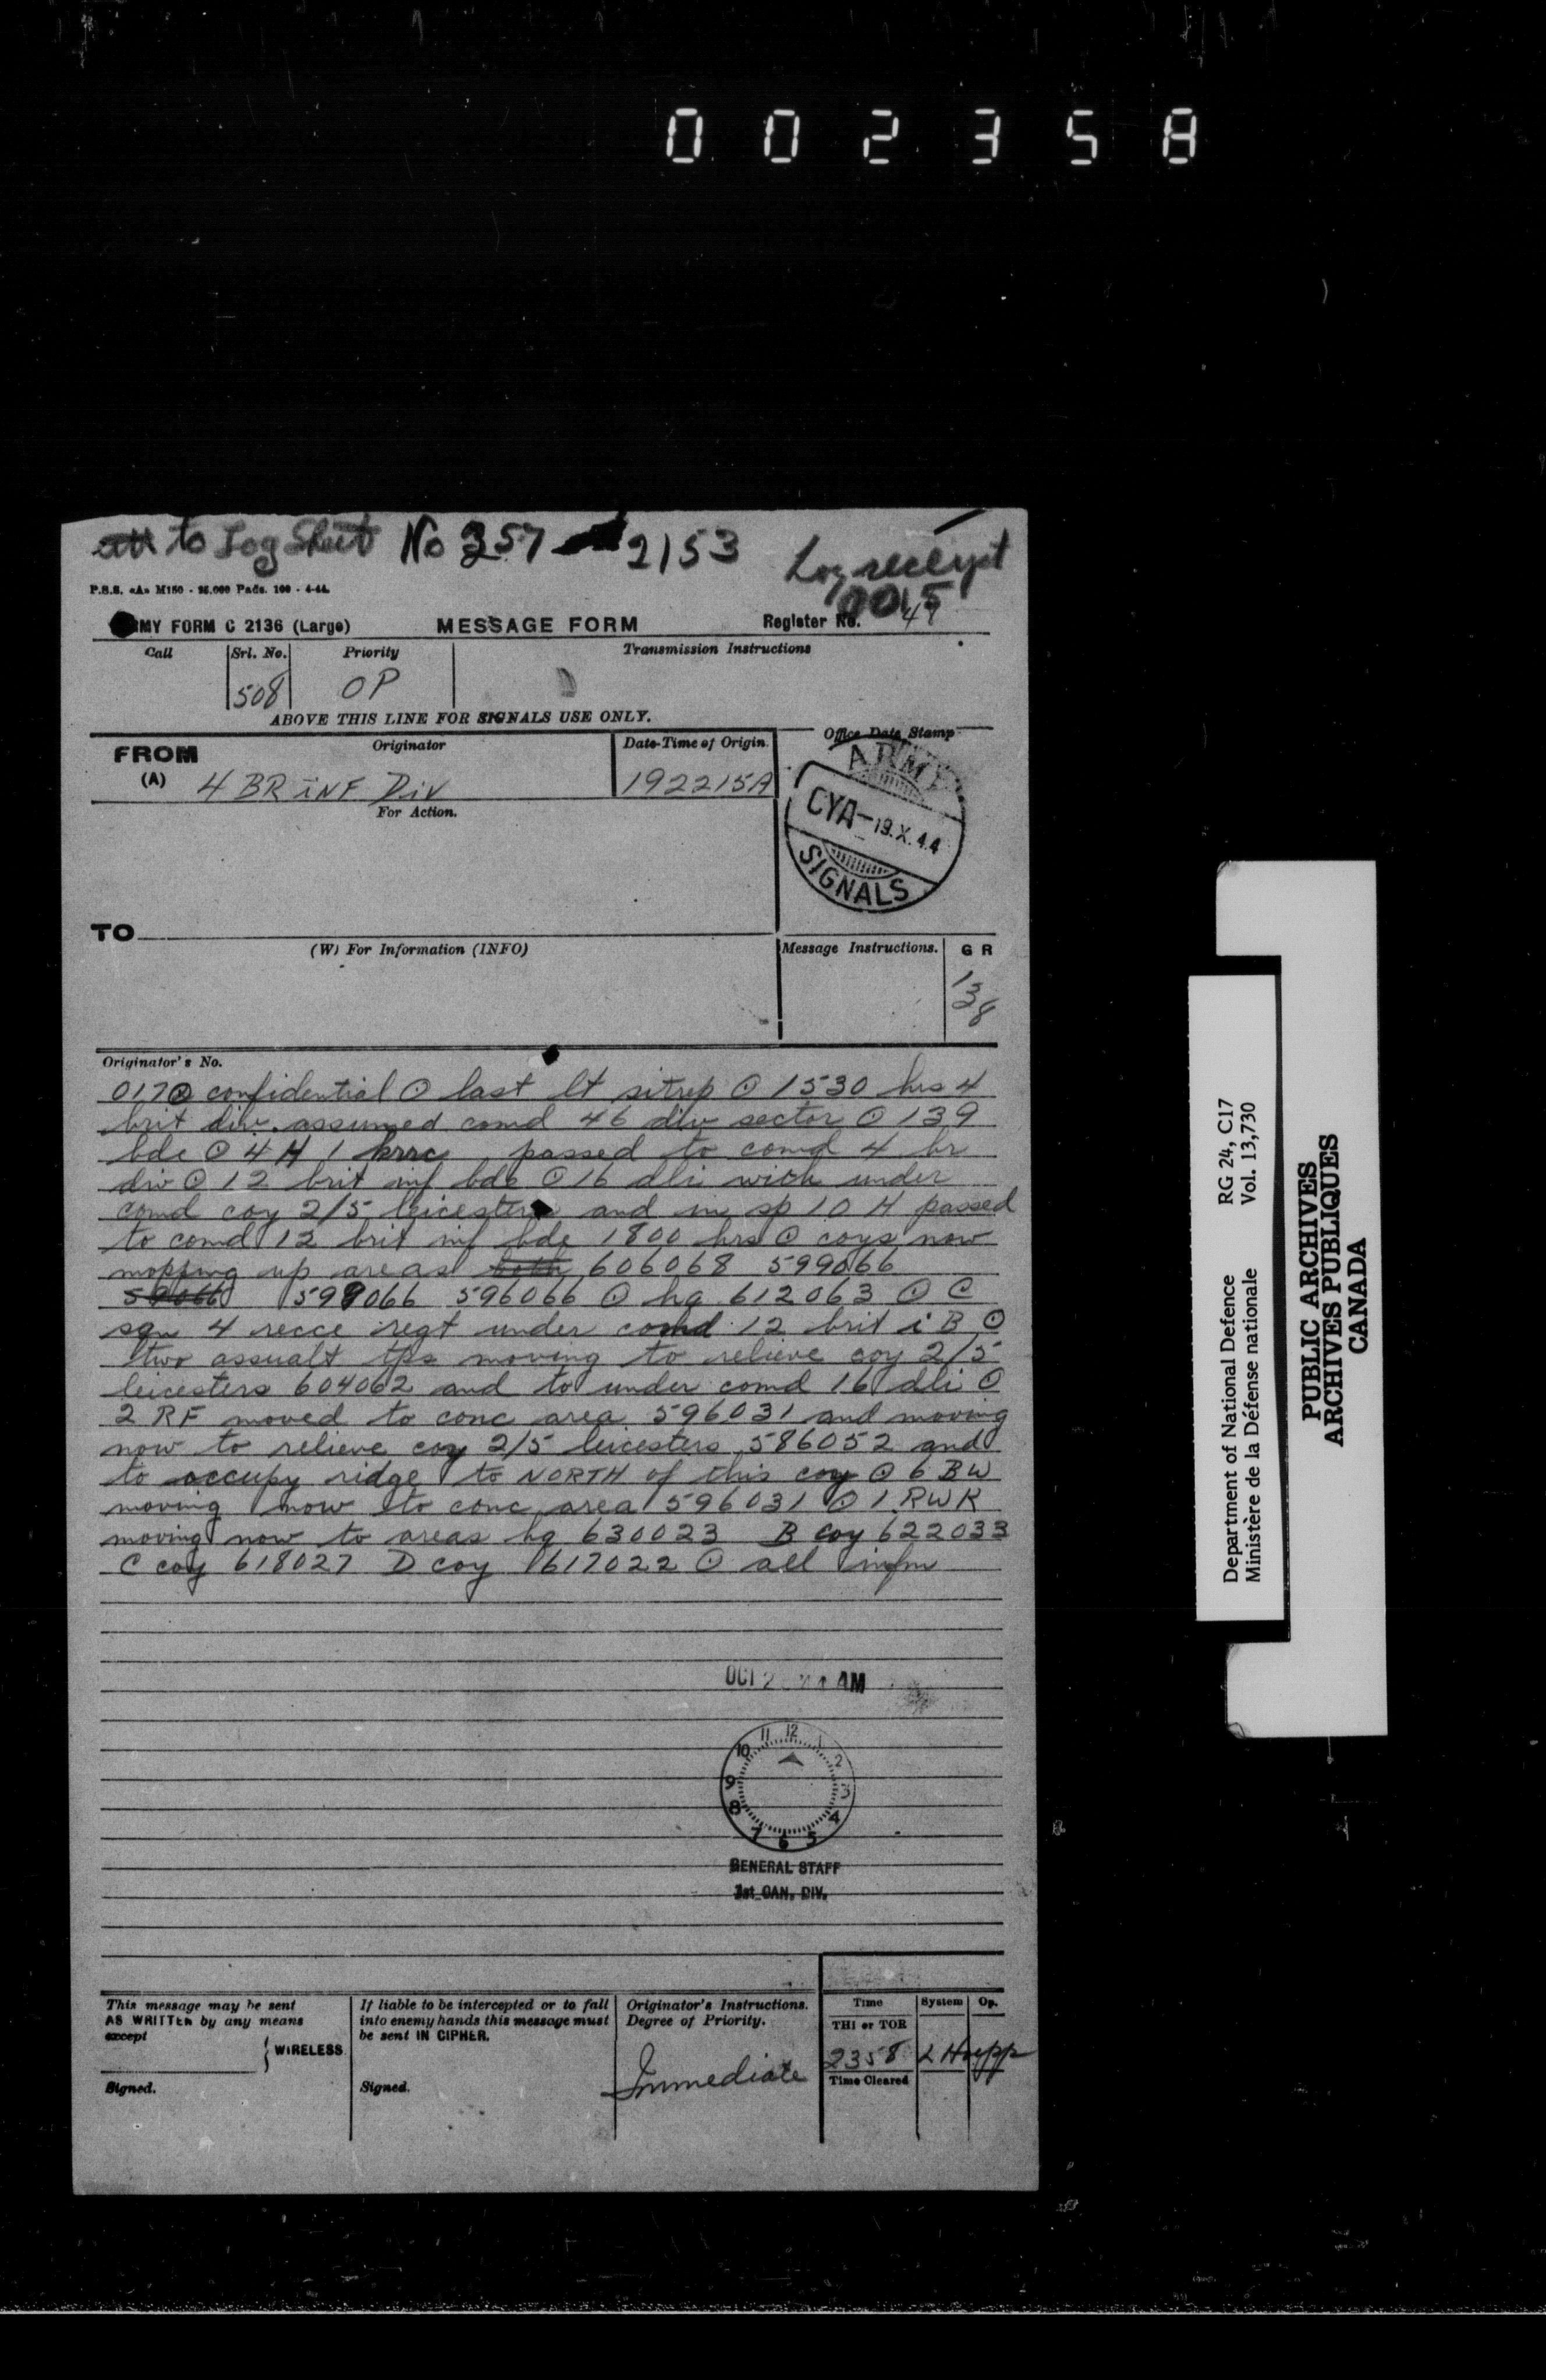 002358
att to Log Sheet No 357 2153
Log receipt
0015
P.S.S. «A» M150 - 25.000 Pads. 100 - 4-44.
MY FORM C 2136 (Large) MESSAGE FORM Register No. 47
Call Srl. No. Priority Transmission Instructions
508 OP
ABOVE THIS LINE FOR SIGNALS USE ONLY.
FROM Originator Date-Time of Origin. Office Date Stamp
(A) 4 BR iNF Div 192215A
For Action.
ARMY
CYA-19.X.44
SIGNALS
TO
(W) For Information (INFO) Message Instructions. G R
138
Originator's No.
017 ⊙ confidential ⊙ last lt sitrep ⊙ 1530 hrs 4
brit div. assumed comd 46 div sector ⊙ 139
bde ⊙ 4 H 1 krrc passed to comd 4 br
div ⊙ 12 brit inf bde ⊙ 16 dli with under
comd coy 2/5 leicesters and in sp 10 H passed
to comd 12 brit inf bde 1800 hrs ⊙ coys now
mopping up areas both 606068 599066
59066 598066 596066 ⊙ hq 612063 ⊙ C
sqn 4 recce regt under comd 12 brit i B ⊙
two assualt tps moving to relieve coy 2/5
leicesters 604062 and to under comd 16 dli ⊙
2 RF moved to conc area 596031 and moving
now to relieve coy 2/5 leicesters 586052 and
to occupy ridge to NORTH of this coy ⊙ 6 BW
moving now to conc area 596031 ⊙ 1 RWK
moving now to areas hq 630023 B coy 622033
C coy 618027 D coy 617022 ⊙ all infm
OCT 2 AM
11 12 1 2 3 4 5 6 7 8 9 10
GENERAL STAFF
1st CAN. DIV.
This message may be sent
AS WRITTEN by any means
except
WIRELESS
Signed.
If liable to be intercepted or to fall
into enemy hands this message must
be sent IN CIPHER.
Signed.
Originator's Instructions.
Degree of Priority.
Immediate
Time System Op.
THI or TOR
2358 L Hoepp
Time Cleared
Department of National Defence RG 24, C17
Ministère de la Défense nationale Vol. 13,730
PUBLIC ARCHIVES
ARCHIVES PUBLIQUES
CANADA